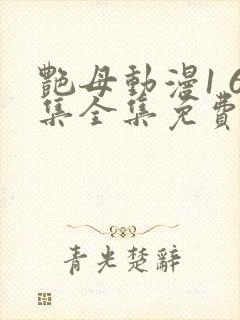 艷母動漫1 6
集全集免費
青光楚辭